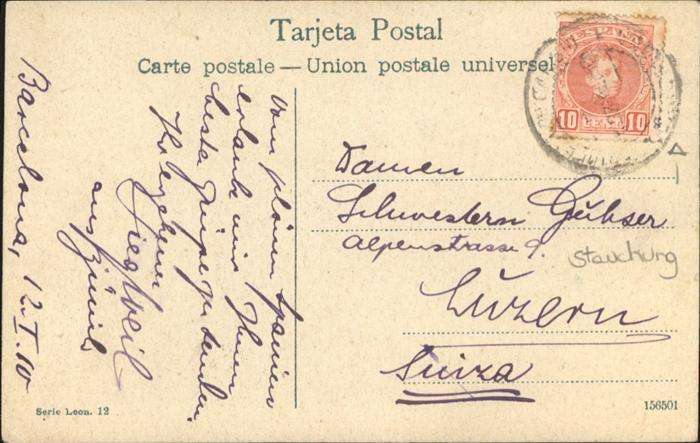 Tarjeta Postal
Carte postale — Union postale universel
10 10
Barcelona, 12. I. 10
Vom schönen Spanien
erlaube mir Ihnen
beste Grüsse zu senden.
Ihr ergebener
aus Zürich
Damen
Schwestern Gubser
Alpenstrasse 9.
Stauchung
Luzern
Suiza
Serie Leon. 12
156501